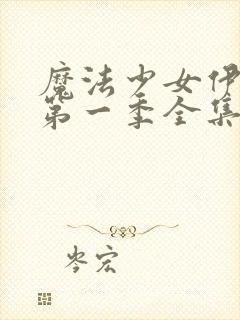 魔法少女伊
第一季全集
岑宏